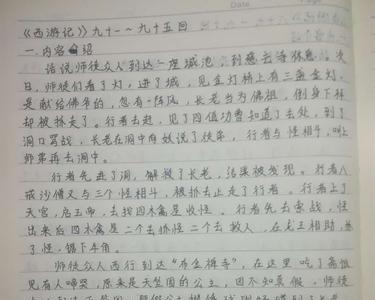 Date
《西游记》九十一～九十五回
一.内容介绍
话说师徒众人到达一座城池,到慈云寺休息。次
日,师徒们看了灯,进了城,见金灯桥上有三盏金灯,
是献给佛爷的,忽有一阵风,长老当为佛祖,倒身下拜
却被抹去了。行者去赶,见了四值功曹知道了去处,到了
洞口骂战,长老在洞中与妖说了使来,行者与怪相斗,叫上
师弟再去洞中。
行者先进了洞,解救了长老,结果被发现。行者八
戒沙僧又与三个怪相斗,被抓去止走了行者。行者上了
天宫,启玉帝,去找四木禽星收怪。行者先去索战,怪
出来后四木禽星二个去抓怪二个去救人,在龙王相助,
了怪,锯下牛角。
师徒众人西行到达“布金禅寺”,在这里吃了斋饭
见有人啼哭,原来是天竺国的公主,因不知真假,师徒